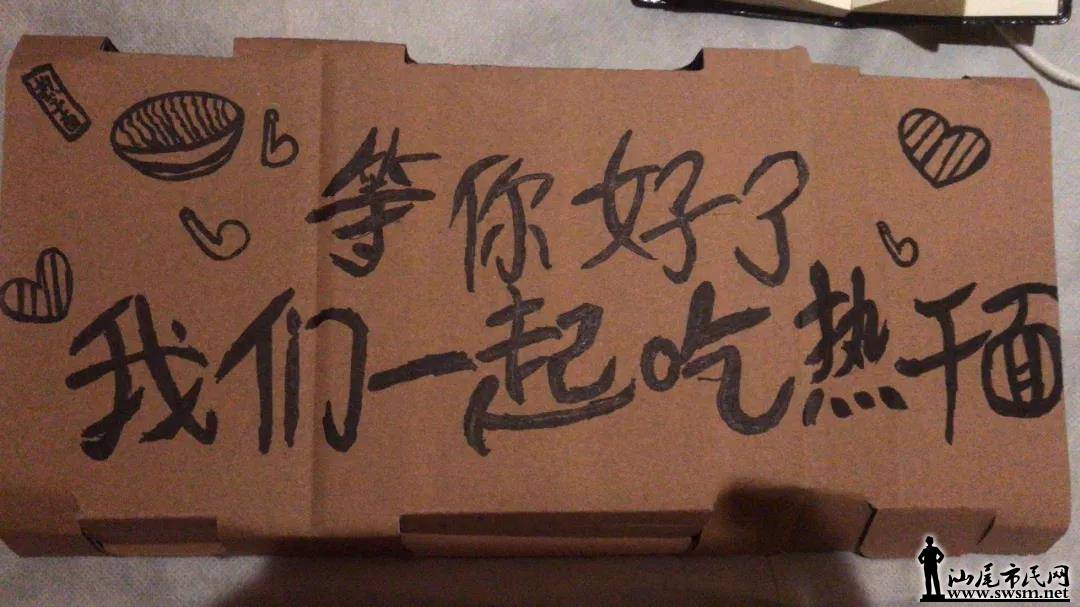 等你好了
我们一起吃热干面
汕尾市民网
www.swsm.net